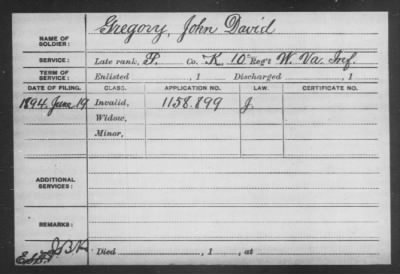 NAME OF SOLDIER: Gregory, John David
SERVICE: Late rank, P. Co. K, 10 Reg't W. Va. Inf.
TERM OF SERVICE: Enlisted , 1 Discharged , 1
DATE OF FILING. CLASS. APPLICATION NO. LAW. CERTIFICATE NO.
1894, June 19 Invalid, 1158.899 J.
Widow,
Minor,
ADDITIONAL SERVICES:
REMARKS:
Died , 1 , at